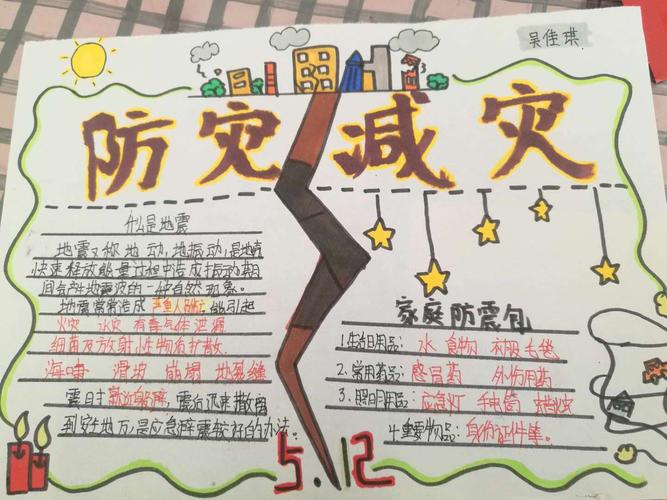 吴佳琪
防灾减灾
什么是地震
地震又称地动,地振动,是地壳
快速释放能量过程中造成振动,期
间会产生地震波的一种自然现象。
地震常常造成严重人员伤亡,能引起
火灾 水灾 有毒气体泄漏
细菌及放射性物质扩散
海啸 滑坡 崩塌 地裂缝
震时就近躲避,震后迅速撤离
到安全地方,是应急避震较好的办法。
家庭防震包
1.生活日用品:水 食物 衣服毛毯
2.常用药品:感冒药 外伤用药
3.照明用品:应急灯 手电筒 蜡烛
4.重要物品:身份证件等。
5.12